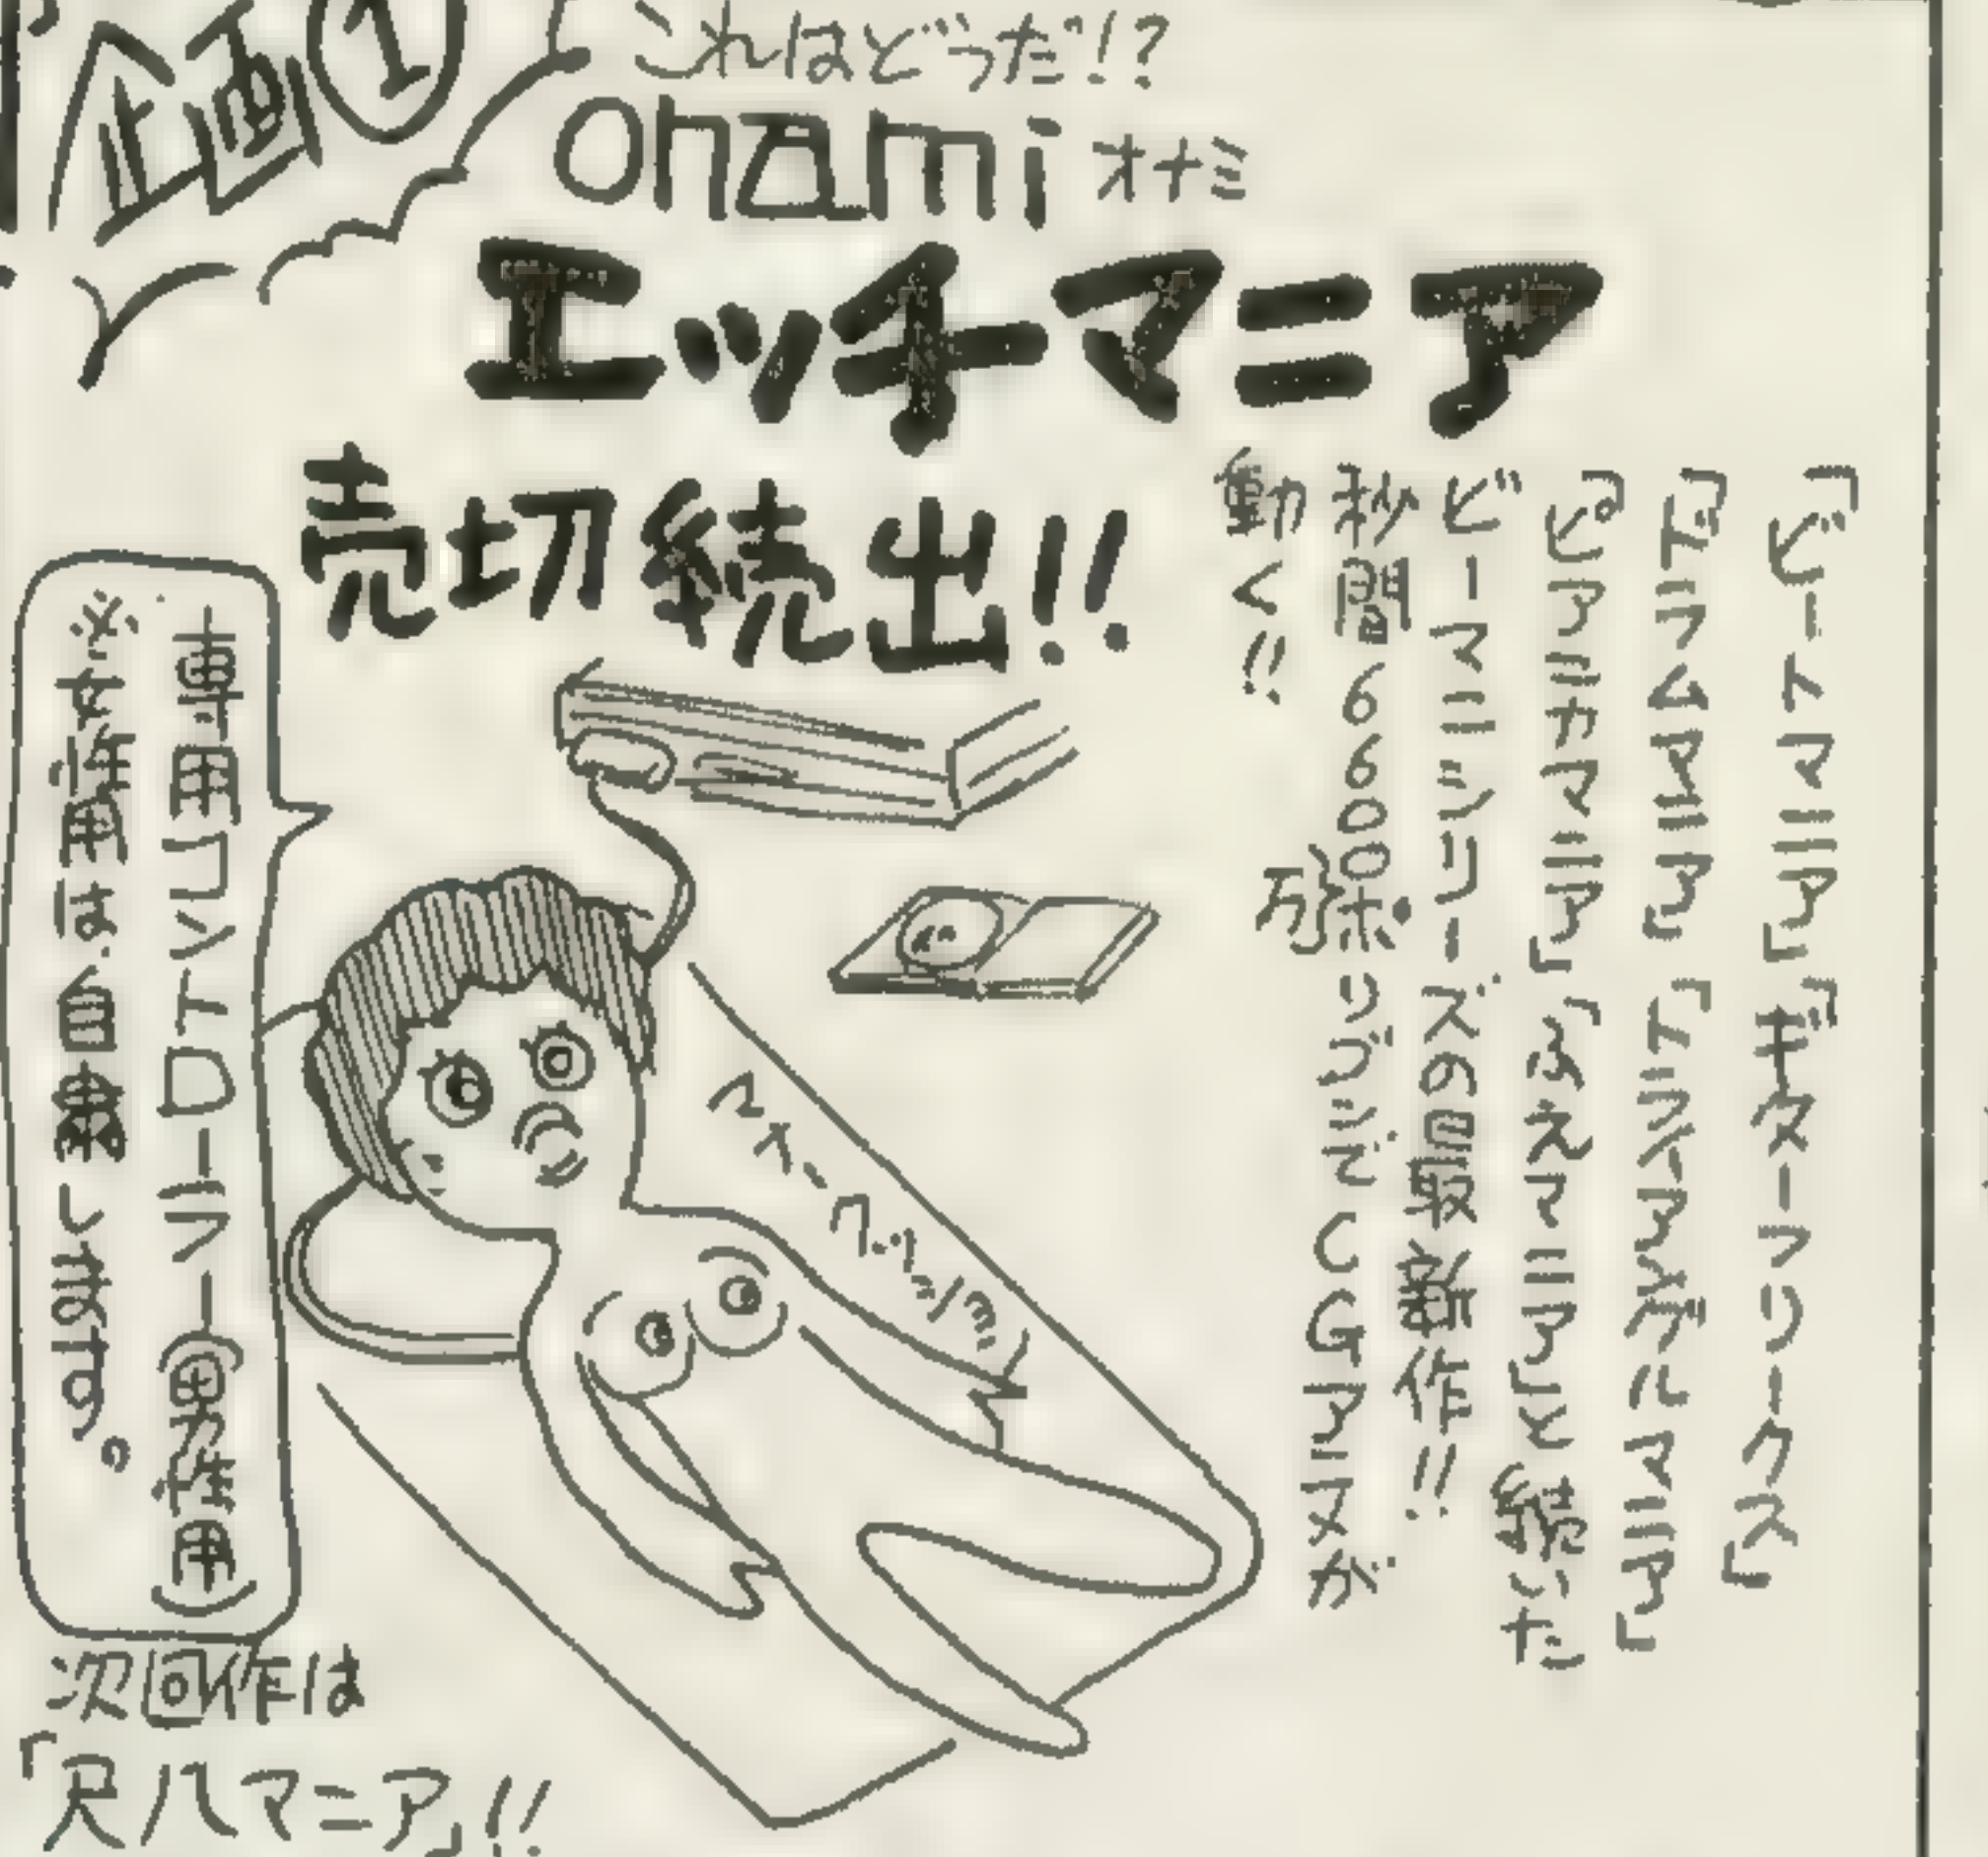 企画①
これはどうだ!?
onami オナミ
エッチマニア
売切続出!!
「ビートマニア」「ギターフリークス」
「ドラムマニア」「
マニア」
「ピアノカマニア」「ふえマニア」と続いた
ビーマニシリーズの最新作!!
秒間6600万ポリゴンでCGアニメが
動く!!
専用コントローラー(男性用)
※女性用は自粛します。
マイクー
次回作は
「尺八マニア」!!